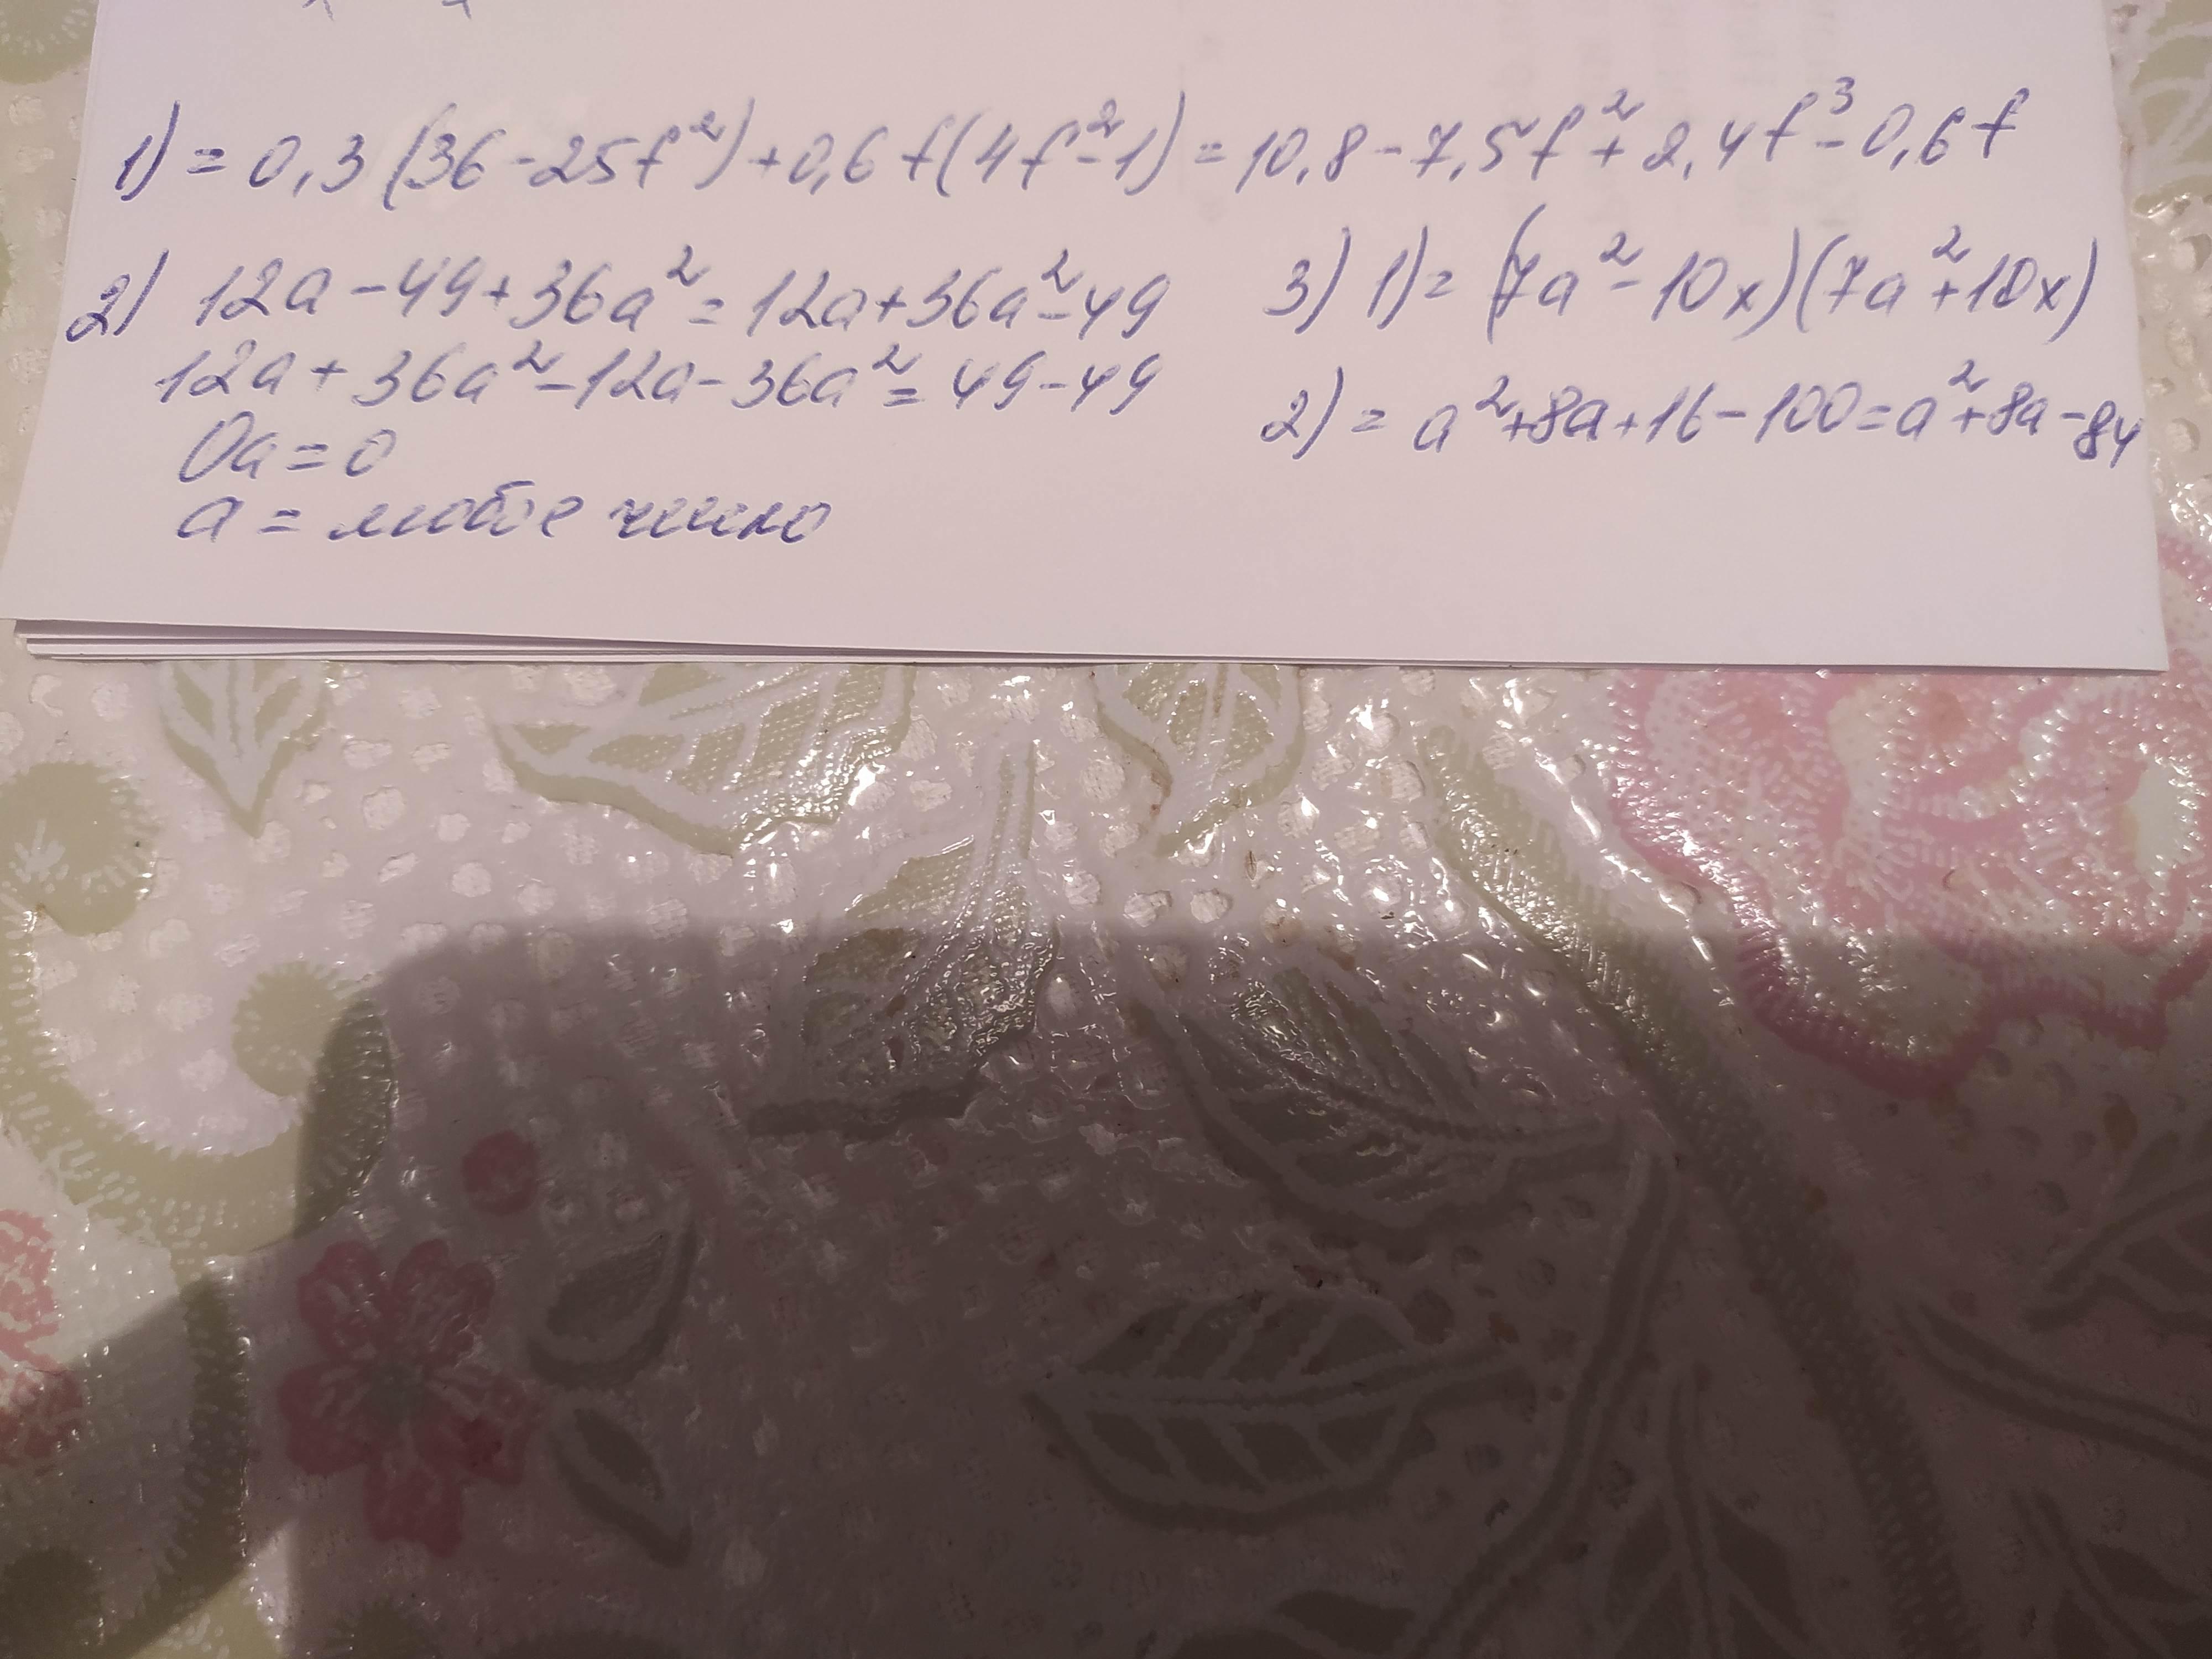 1) = 0,3 (36 - 25f²) + 0,6 f (4f² - 1) = 10,8 - 7,5f² + 2,4f³ - 0,6f
2) 12a - 49 + 36a² = 12a + 36a² - 49
12a + 36a² - 12a - 36a² = 49 - 49
0a = 0
a = любое число
3) 1) = (7a² - 10x)(7a² + 10x)
2) = a² + 8a + 16 - 100 = a² + 8a - 84